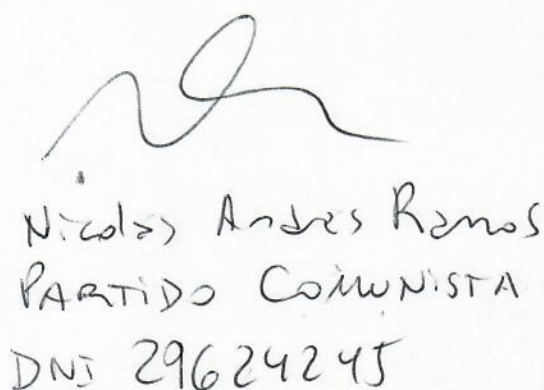 Nicolas Andres Ramos
PARTIDO COMUNISTA
DNI 29624245